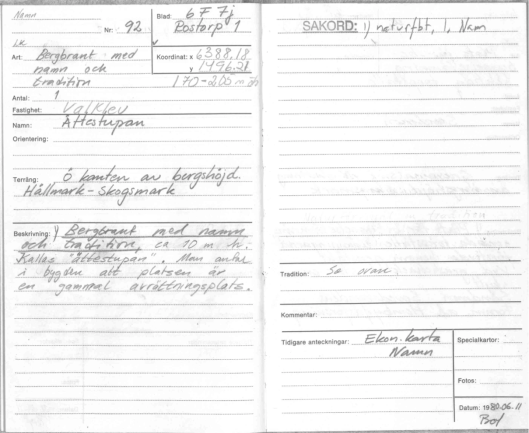 Namn
Nr: 92
Blad: 6 F 7j
Postorp 1
LK
Art: Bergbrant med
namn och
tradition
Koordinat: x 6388,18
y 1496.21
170-205 m öh
Antal: 1
Fastighet: Valklev
Namn: Ättestupan
Orientering:
Terräng: Ö kanten av bergshöjd.
Hällmark-Skogsmark
Beskrivning: 1) Bergbrant med namn
och tradition, ca 10 m h.
Kallas "ättestupan". Man antar
i bygden att platsen är
en gammal avrättningsplats.
SAKORD: 1) naturfbt, 1, Namn
Tradition: Se ovan.
Kommentar:
Tidigare anteckningar: Ekon. karta
Namn
Specialkartor:
Fotos:
Datum: 1980.06.11